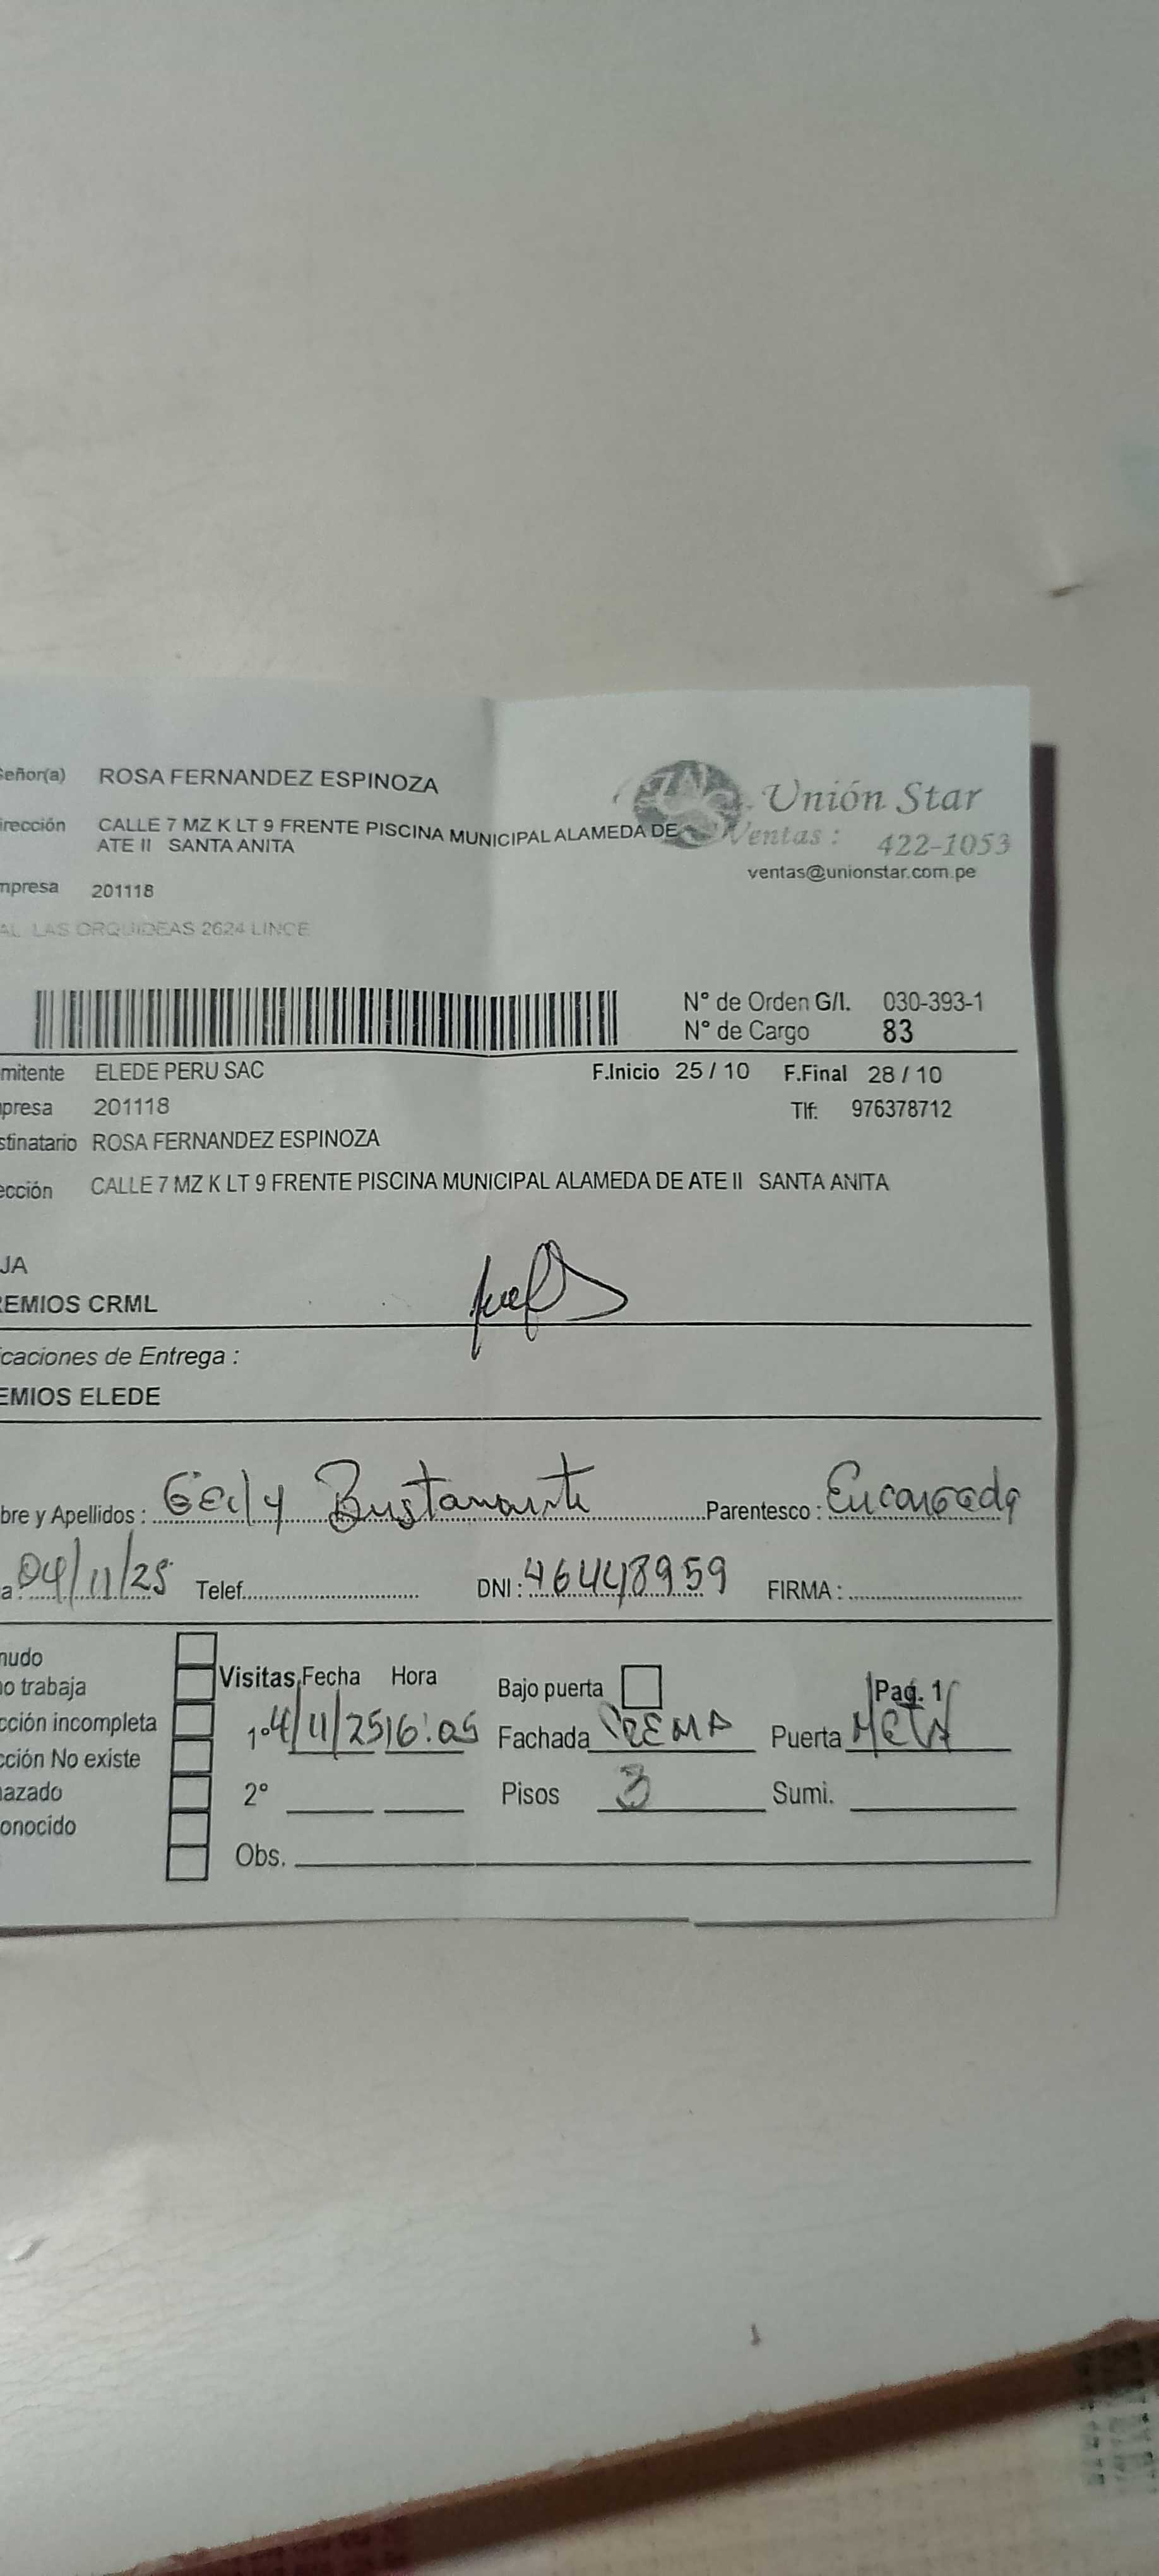 Señor(a) ROSA FERNANDEZ ESPINOZA
Unión Star
irección CALLE 7 MZ K LT 9 FRENTE PISCINA MUNICIPAL ALAMEDA DE
ATE II SANTA ANITA
Ventas : 422-1053
ventas@unionstar.com.pe
mpresa 201118
AL. LAS ORQUIDEAS 2624 LINCE
N° de Orden G/I. 030-393-1
N° de Cargo 83
mitente ELEDE PERU SAC F.Inicio 25 / 10 F.Final 28 / 10
presa 201118 Tlf: 976378712
stinatario ROSA FERNANDEZ ESPINOZA
ección CALLE 7 MZ K LT 9 FRENTE PISCINA MUNICIPAL ALAMEDA DE ATE II SANTA ANITA
JA
REMIOS CRML
caciones de Entrega :
EMIOS ELEDE
bre y Apellidos : Bustamante Parentesco : Encargada
a : 04/11/25 Telef. DNI : 46448959 FIRMA :
nudo
o trabaja Visitas Fecha Hora Bajo puerta Pag. 1
cción incompleta 1° 4/11/25 16:05 Fachada CREMA Puerta
cción No existe
azado 2° Pisos 3 Sumi.
onocido
Obs.